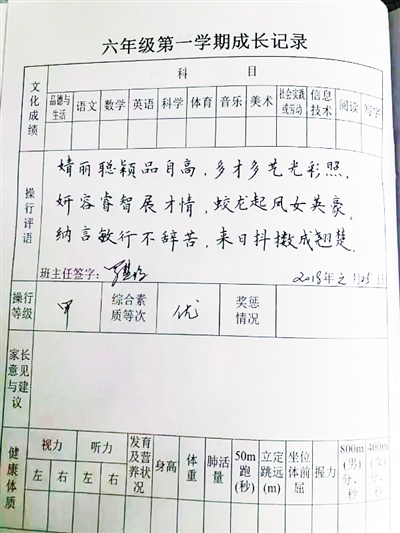 六年级第一学期成长记录
文化成绩
科 目
品德与生活 语文 数学 英语 科学 体育 音乐 美术 社会实践或劳动 信息技术 阅读 写字
操行评语
婧丽聪颖品自高，多才多艺光彩照。
妍容睿智展才情，蛟龙起凤女英豪，
纳言敏行不辞苦，来日抖擞成翘楚。
班主任签字： 2018年元月25日
操行等级 甲 综合素质等次 优 奖惩情况
家长意见与建议
健康体质
视力 听力 发育及营养状况 身高 体重 肺活量 50m跑(秒) 立定跳远(m) 坐位体前屈 握力 800m(男)分、秒 400m(女)分、秒
左 右 左 右